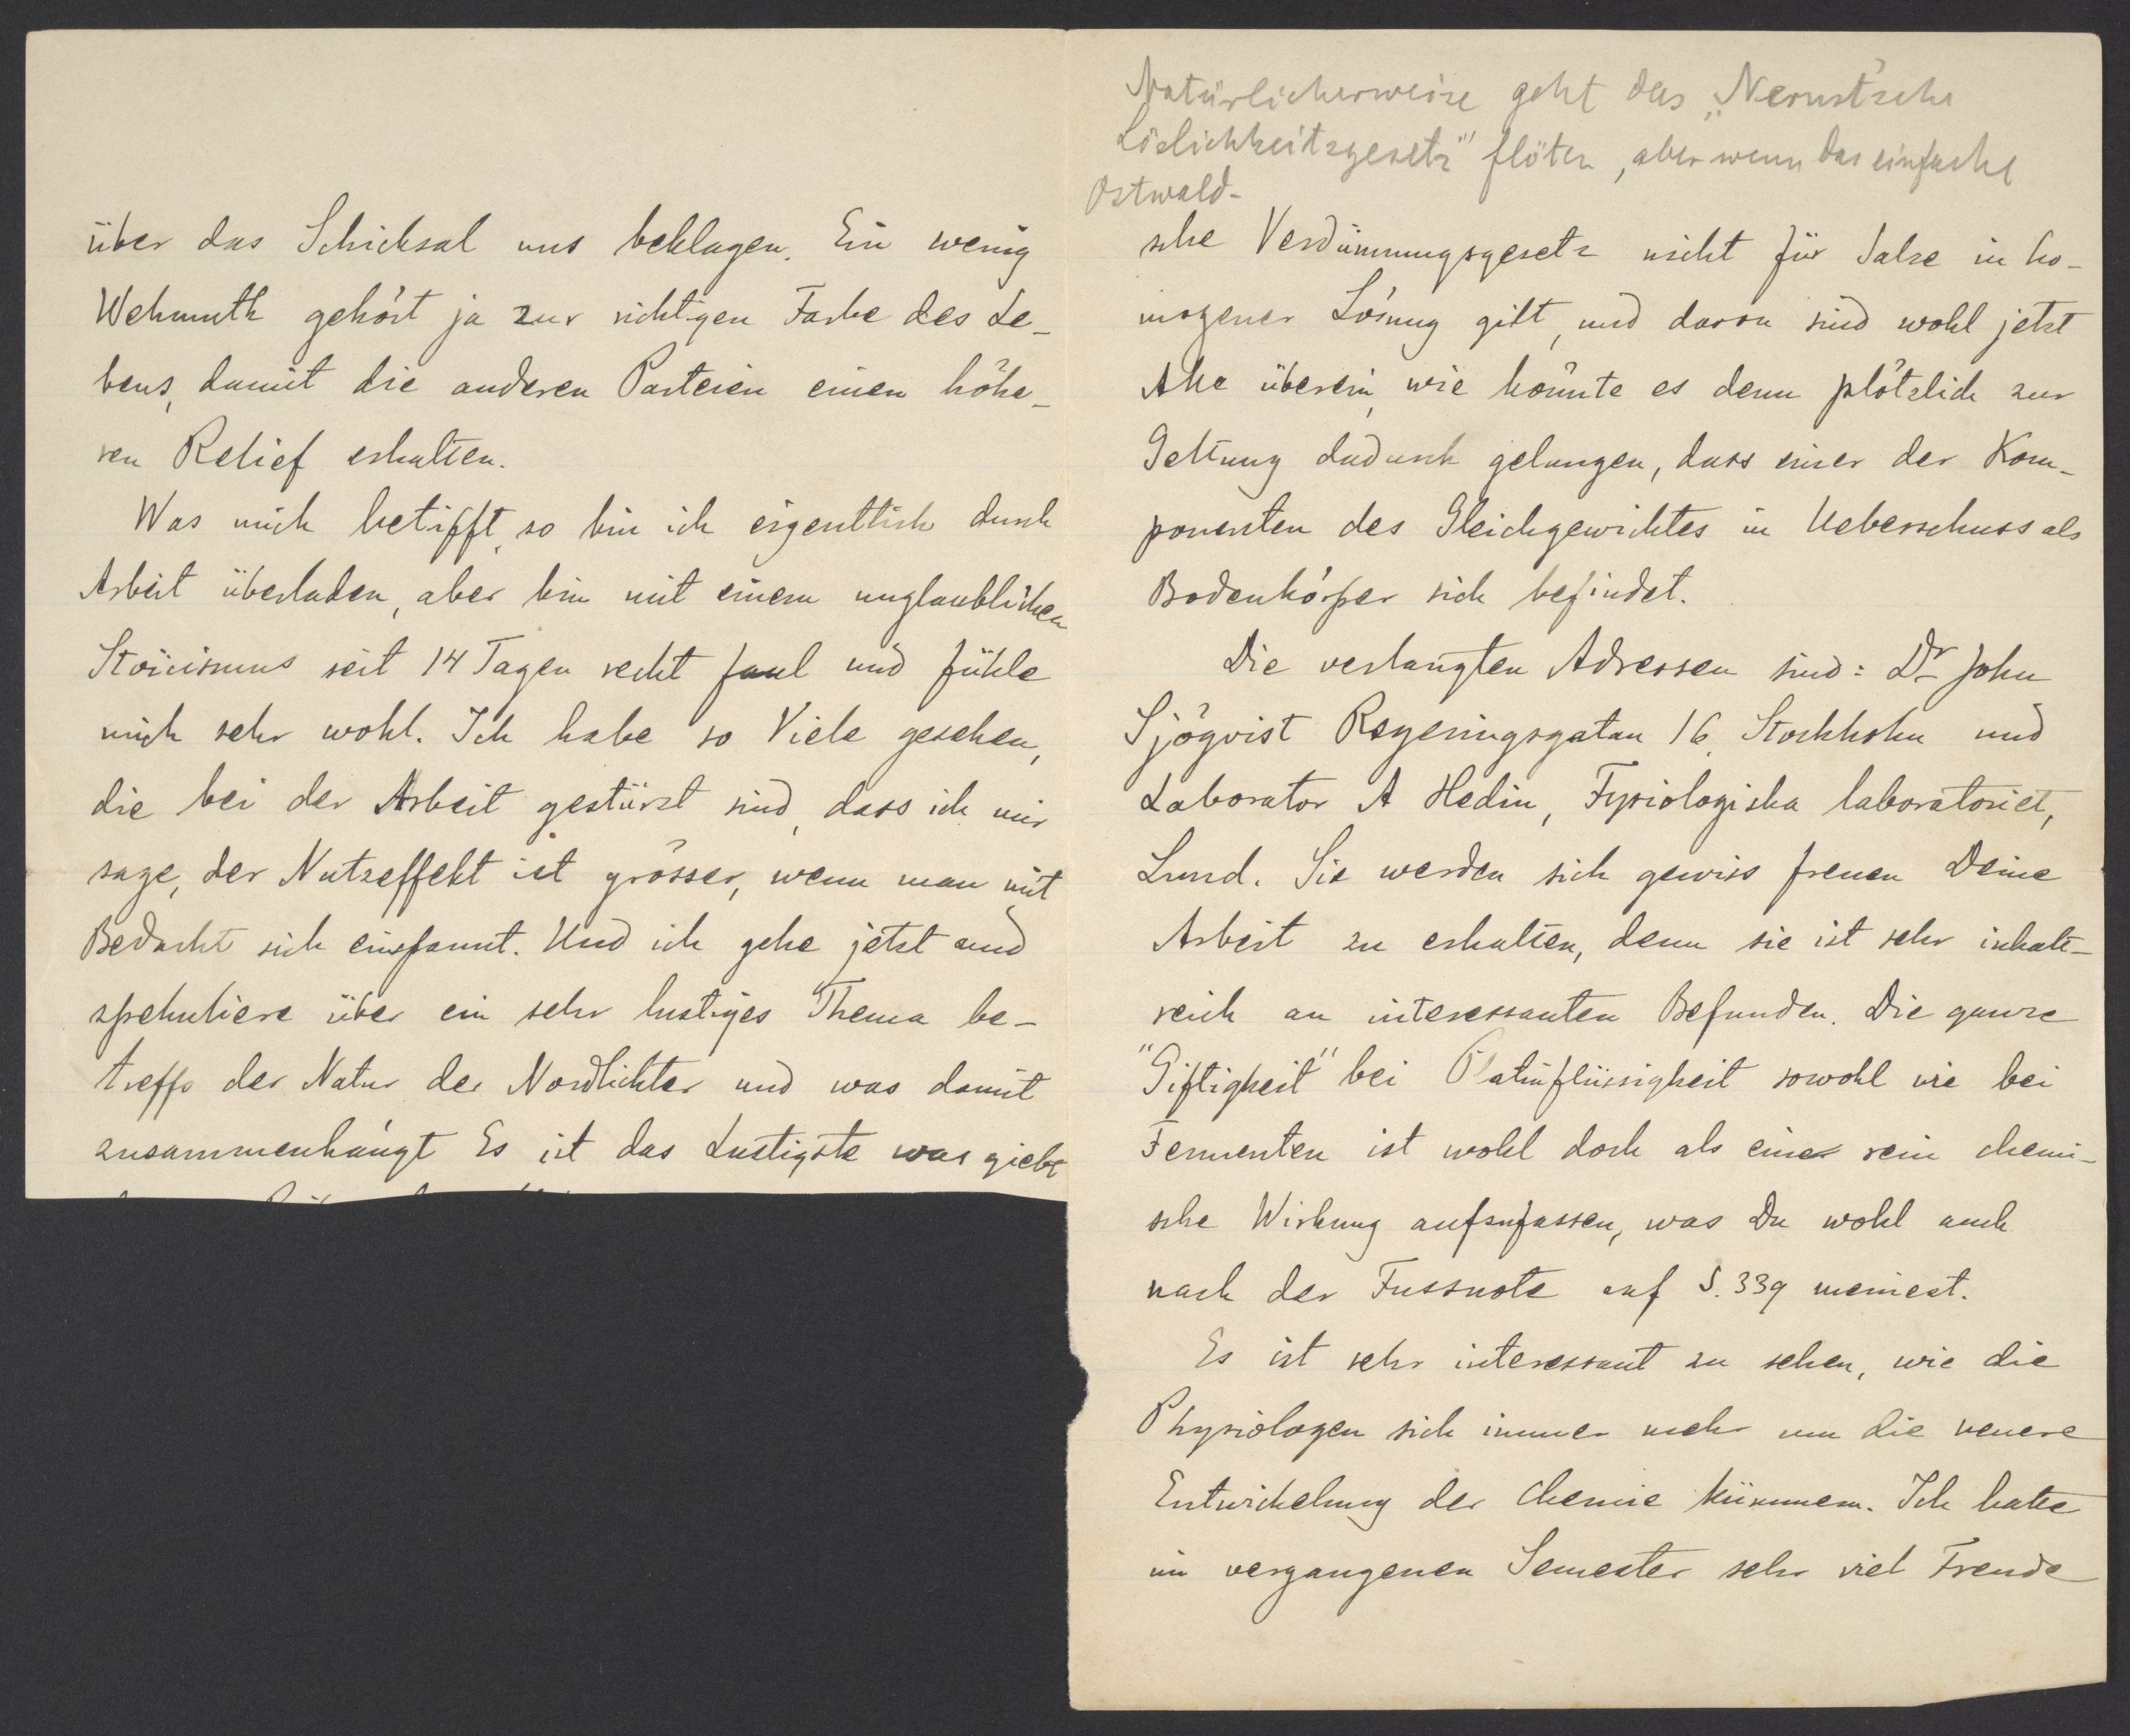 über das Schicksal uns beklagen. Ein wenig
Wehmuth gehört ja zur richtigen Farbe des Le-
bens, damit die anderen Parteien einen höhe-
ren Relief erhalten.
Was mich betrifft, so bin ich eigentlich durch
Arbeit überladen, aber bin mit einem unglaublichen
Stoicismus seit 14 Tagen recht faul und fühle
mich sehr wohl. Ich habe so Viele gesehen,
die bei der Arbeit gestürzt sind, dass ich mir
sage, der Nutzeffekt ist grösser, wenn man mit
Bedacht sich einspannt. Und ich gehe jetzt und
spekuliere über ein sehr lustiges Thema be-
treffs der Natur der Nordlichter und was damit
zusammenhängt Es ist das Lustigste was giebt
Natürlicherweise geht das „Nernst'sche
Löslichkeitsgesetz" flöten, aber wenn das einfache
Ostwald-
sche Verdünnungsgesetz nicht für Salze in ho-
mogener Lösung gilt, und daran sind wohl jetzt
Alle überein, wie könnte es denn plötzlich zur
Geltung dadurch gelangen, dass einer der Kom-
ponenten des Gleichgewichtes in Ueberschuss als
Bodenkörper sich befindet.
Die verlangten Adressen sind: Dr John
Sjöqvist Regeringsgatan 16, Stockholm und
Laborator A Hedin, Fysiologiska laboratoriet,
Lund. Sie werden sich gewiss freuen Deine
Arbeit zu erhalten, denn sie ist sehr inhalt-
reich an interessanten Befunden. Die ganze
"Giftigkeit" bei Platinflüssigkeit sowohl wie bei
Fermenten ist wohl doch als eine rein chemi-
sche Wirkung aufzufassen, was Du wohl auch
nach der Fussnote auf S. 339 meinest.
Es ist sehr interessant zu sehen, wie die
Physiologen sich immer mehr um die neuere
Entwickelung der Chemie kümmern. Ich hatte
im vergangenen Semester sehr viel Freude